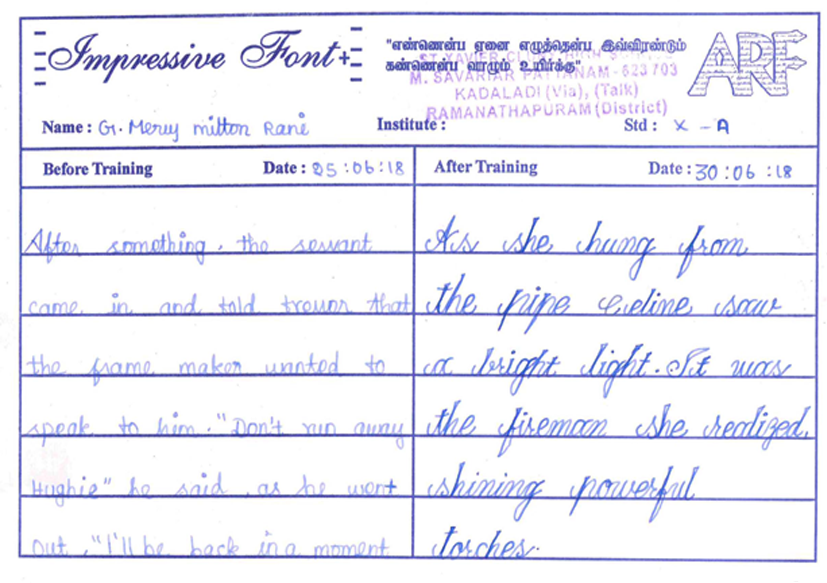 Impressive Font+
"எண்ணென்ப ஏனை எழுத்தென்ப இவ்விரண்டும்
கண்ணென்ப வாழும் உயிர்க்கு"
ARF
M. SAVARIAR PATTANAM - 623 703
KADALADI (Via), (Talk)
RAMANATHAPURAM (District)
Name : G. Mercy milton Rani Institute : Std : X - A
Before Training Date : 25 : 06 : 18
After something, the servant
came in and told trevor that
the frame maker wanted to
speak to him. "Don't run away
Hughie" he said, as he went
out, "I'll be back in a moment
After Training Date : 30 : 06 : 18
As she hung from
the pipe Celine saw
a bright light. It was
the fireman she realized,
shining powerful
torches.